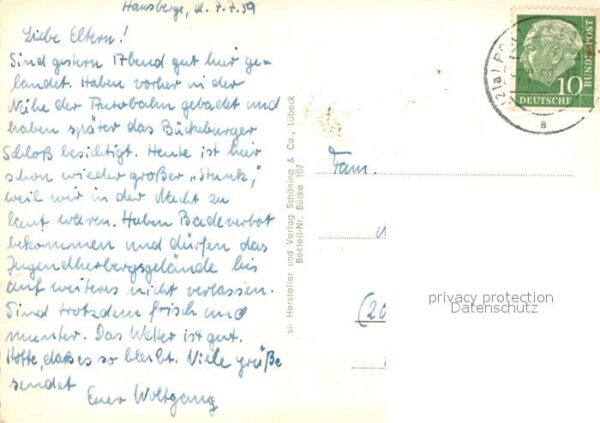 Hausberge, d. 7.7.59
Liebe Eltern!
Sind gestern abend gut hier ge-
landet. Haben vorher in der
Nähe der Autobahn gebadet und
haben später das Bückeburger
Schloß besichtigt. Heute ist hier
schon wieder großer „Stunk",
weil wir in der Nacht zu
laut waren. Haben Badeverbot
bekommen und dürfen das
Jugendherbergsgelände bis
auf weiteres nicht verlassen.
Sind trotzdem frisch und
munter. Das Wetter ist gut.
Hoffe, daß es so bleibt. Viele Grüße
sendet
Euer Wolfgang
si- Hersteller und Verlag Schöning & Co., Lübeck
Bestell-Nr. Bücke 107
(21a)
10
DEUTSCHE
BUNDESPOST
a
Fam.
(20
privacy protection
Datenschutz